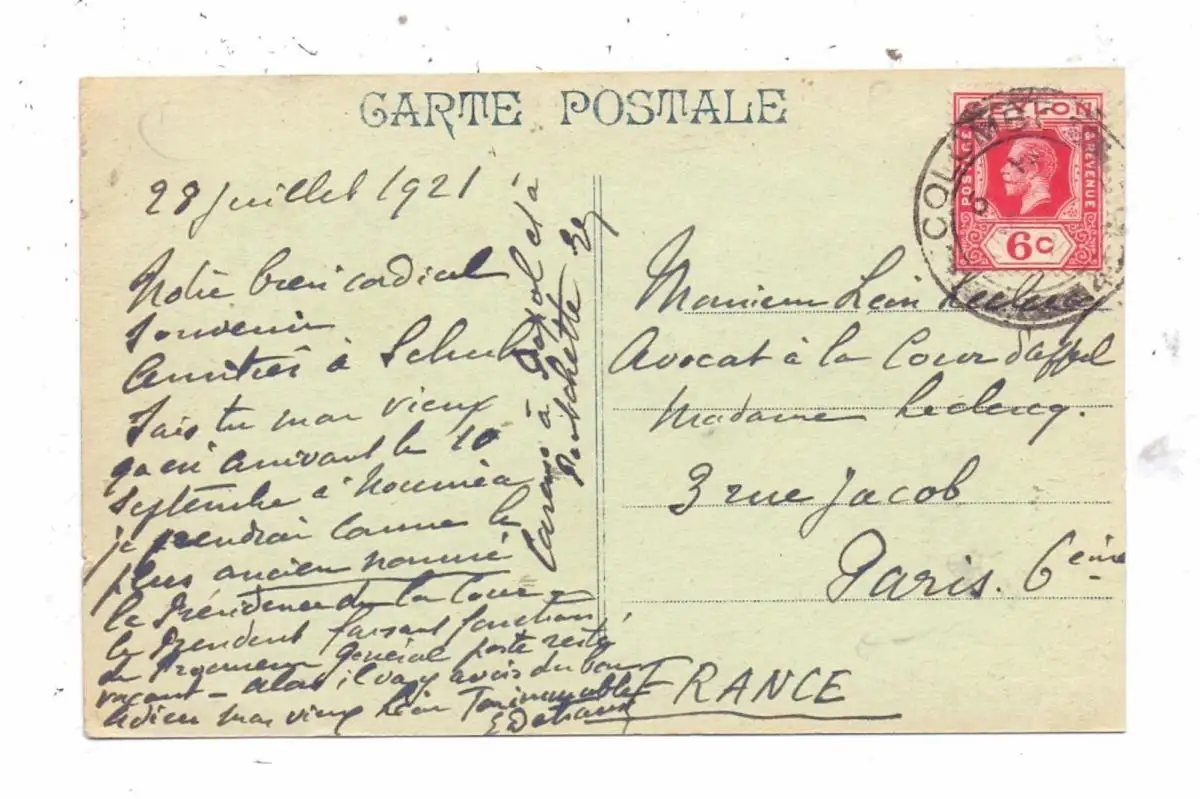 CARTE POSTALE
28 Juillet 1921
Notre bien cordial
souvenir
Amitiés à
Sais tu mon vieux
qu'en arrivant le 10
septembre à Nouméa
je prendrai comme le
plus ancien nommé
la Présidence de la Cour
le Président faisant fonction
de Procureur Général poste resté
vacant - alors il va y avoir du bon
Adieu mon vieux Léon
à et à
CEYLON
POSTAGE
& REVENUE
6c
COLOMBO
Monsieur Léon Leclercq
Avocat à la Cour d'appel
Madame Leclercq.
3 rue Jacob
Paris. 6ème
FRANCE